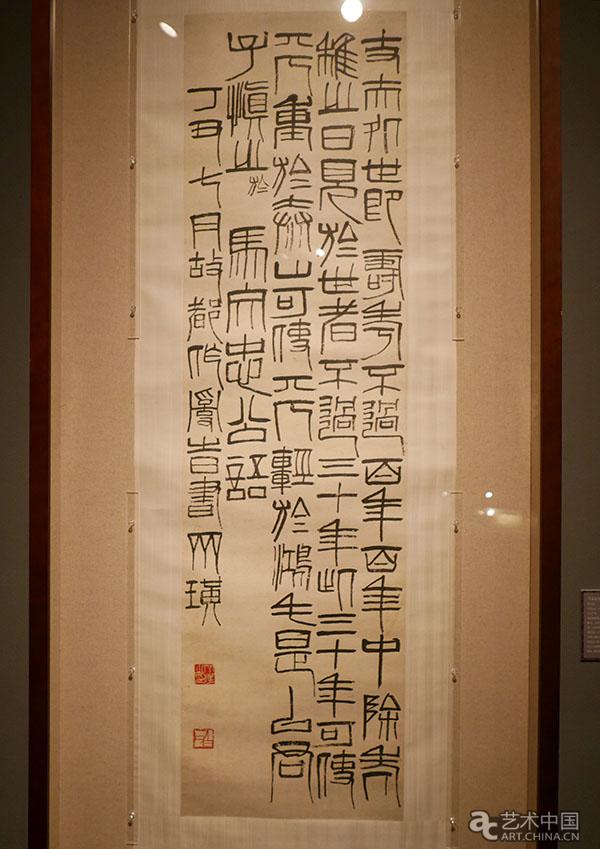 丈夫処世即壽考不過百年百年中除老
稚之日見於世者不過三十年此三十年可使
其人重於泰山可使其人輕於鴻毛是以君
子慎之 於 馬文忠公語
丁丑七月故都作 書 齊璜
艺术中国
ART.CHINA.CN